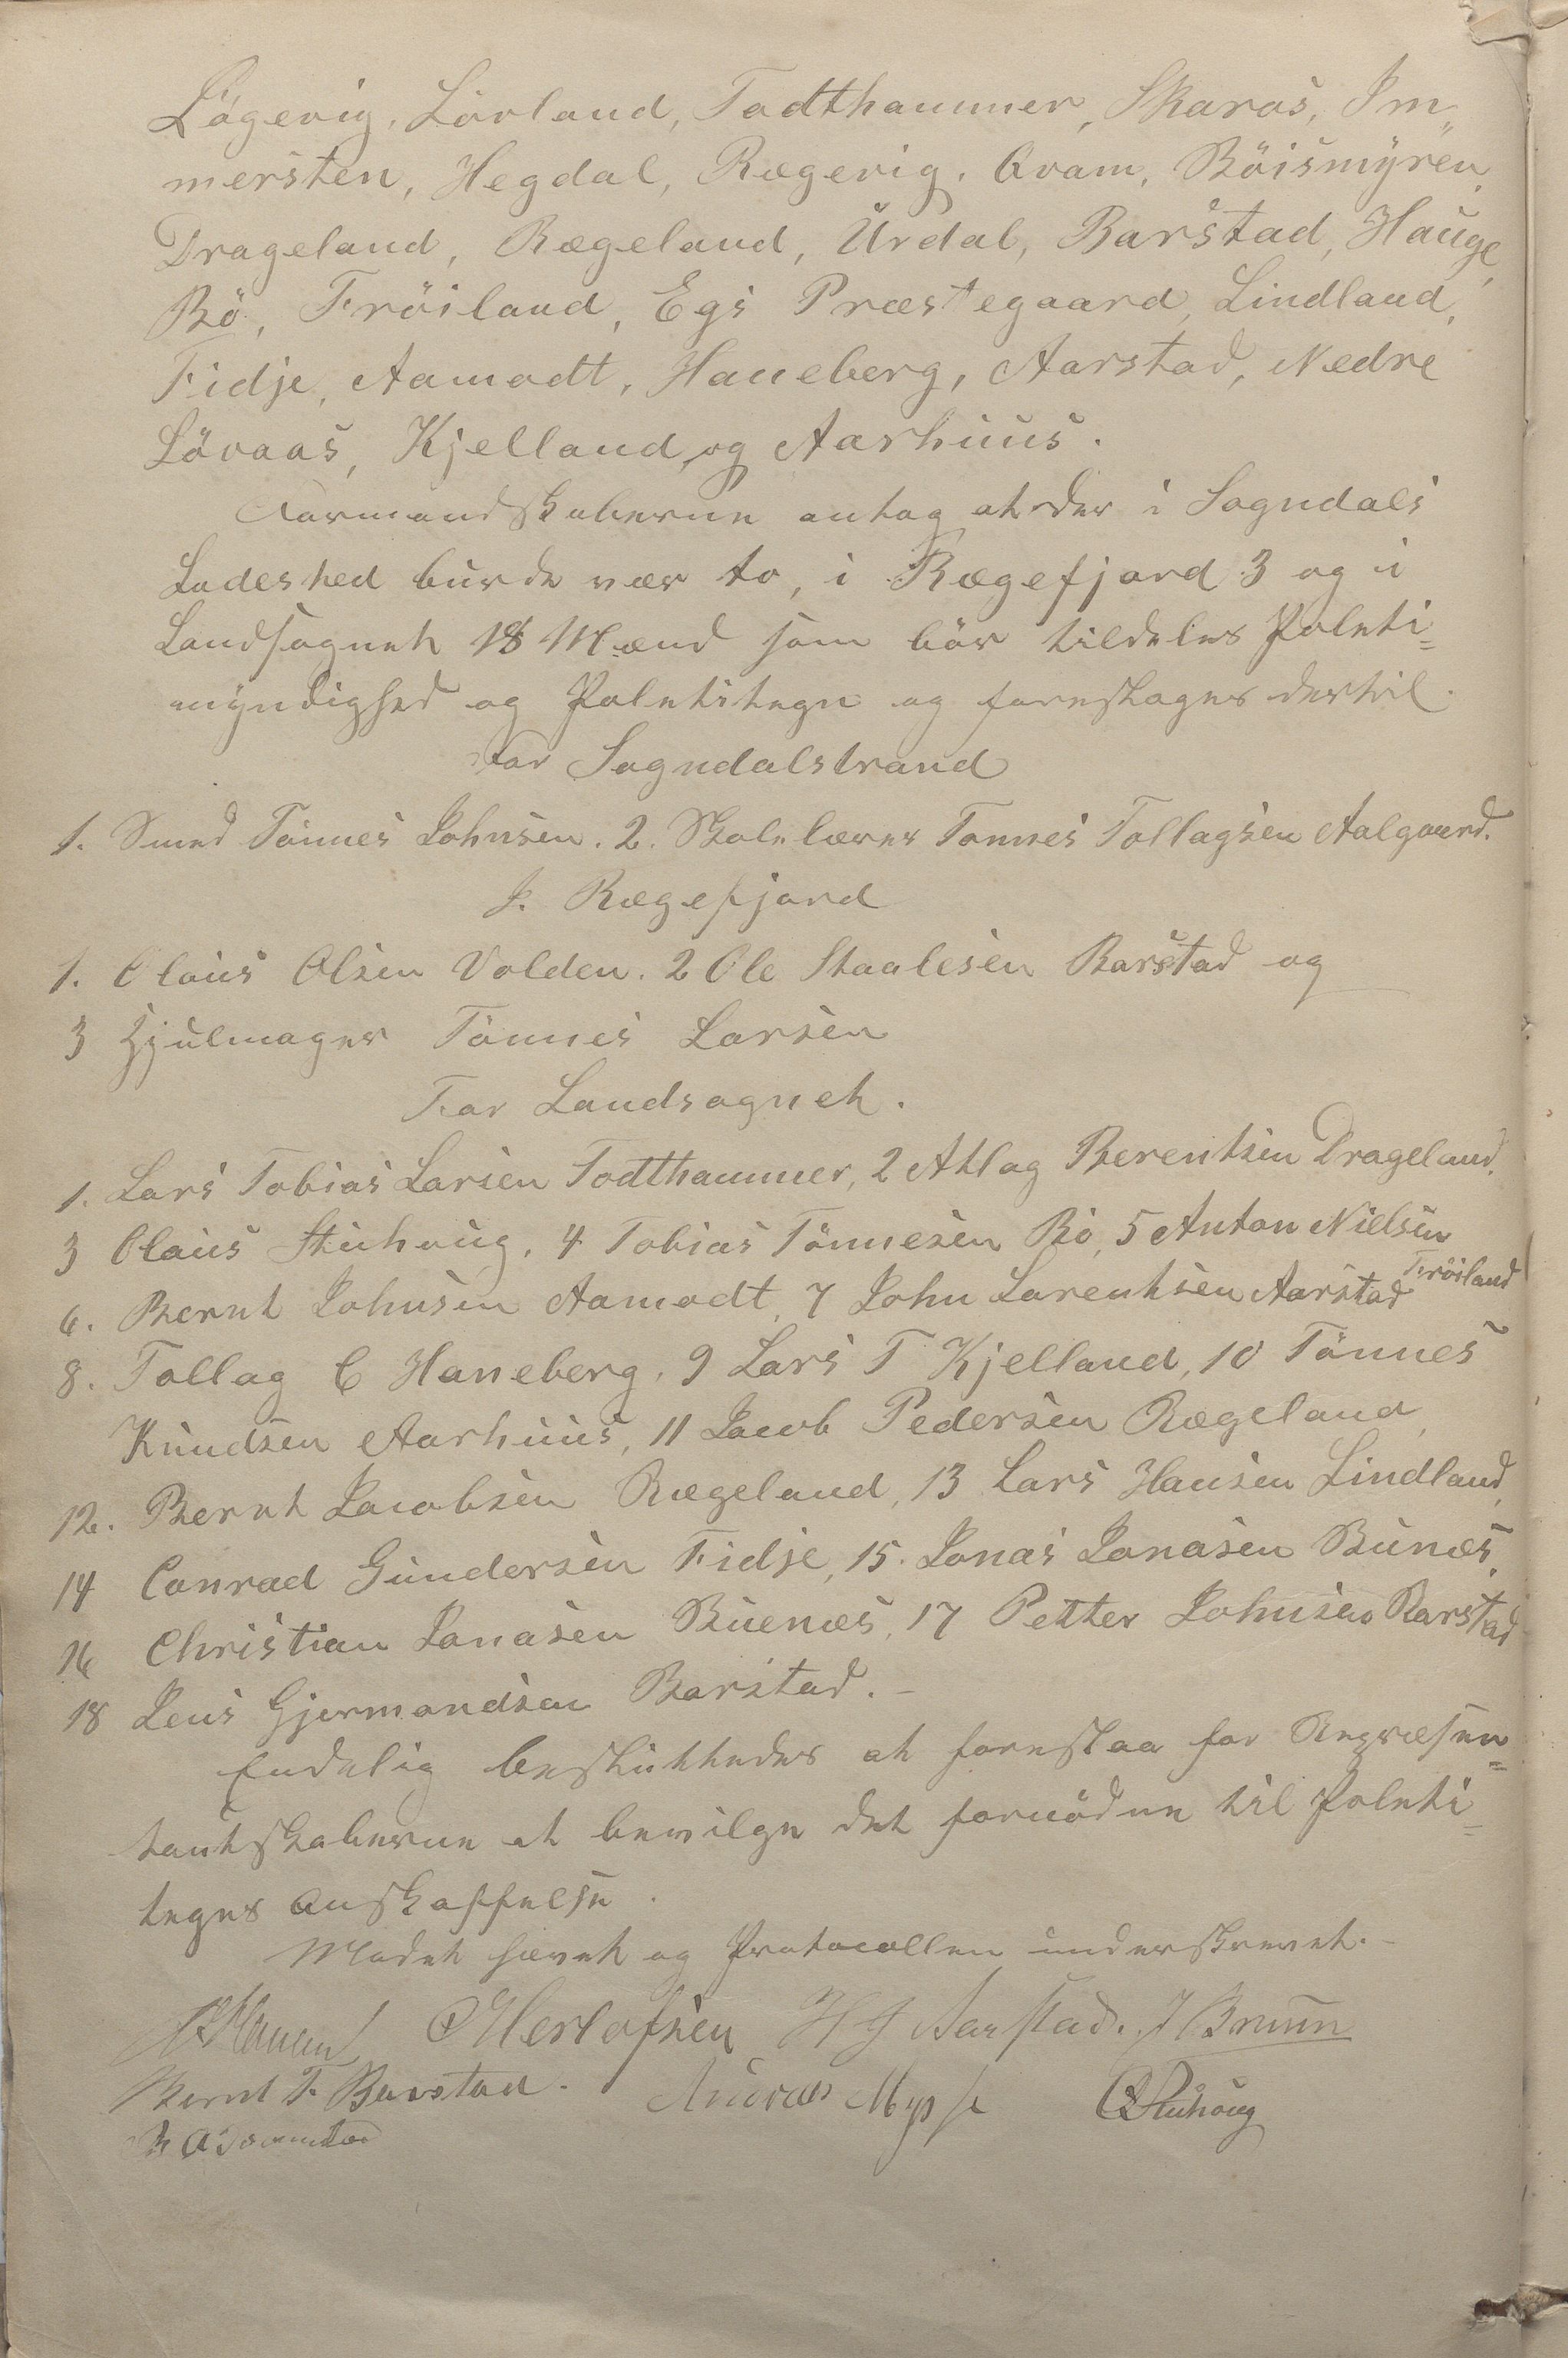 Lögevig, Lövland, Todthammer, Skaraas, Im„
mersten, Hegdal, Rægevig, Qvam, Böismyren,
Drageland, Rægeland, Urdal, Barstad, Hauge,
Bö, Fröiland, Egs Præstegaard, Lindland,
Fidje, Aamodt, Haneberg, Aarstad, Nedre
Lövaas, Kjelland, og Aarhuus.
Formandskaberne antog at der i Sogndals
Ladested burde vær to, i Rægefjord 3 og i
Landsognet 18 Mænd som bör tildeles Politi=
myndighed og Polititegn og foreslages dertil.
For Sogndalstrand
1. Smed Tönnes Johnsen. 2. Skolelærer Tönnes Tollagsen Aalgaard.
J. Rægefjord
1. Olaus Olsen Volden. 2 Ole Staalesen Barstad og
3 Hjulmager Tönnes Larsen
For Landsognet.
1. Lars Tobias Larsen Todthammer, 2 Atlag Berentsen Drageland.
3 Olaus Stuhaug, 4 Tobias Tönnesen Bö, 5 Anton Nielsen
Fröiland
6. Bernt Johnsen Aamodt, 7 John Larentsen Aarstad
8. Tollag C Haneberg, 9 Lars T Kjelland, 10 Tönnes
Knudsen Aarhuus, 11 Jacob Pedersen Rægeland
12. Bernt Jacobsen Rægeland, 13 Lars Hansen Lindland,
14 Conrad Gundersen Fidje, 15. Jonas Jonasen Buenæs,
16 Christian Jonasen Buenæs, 17 Petter Johnsen Barstad
18 Jens Gjermondsen Barstad. –
Endelig besluttedes at foreslaa for Repræsen=
tantskaberne at bevilge det fornödne til Politi=
tegns Anskaffelse.
Mødet hævet og Protocollen underskrevet. –
Herlofsen H G Aarstad. J Bruun
Bernt T. Barstad. Andreas Mysse O Stuhoug